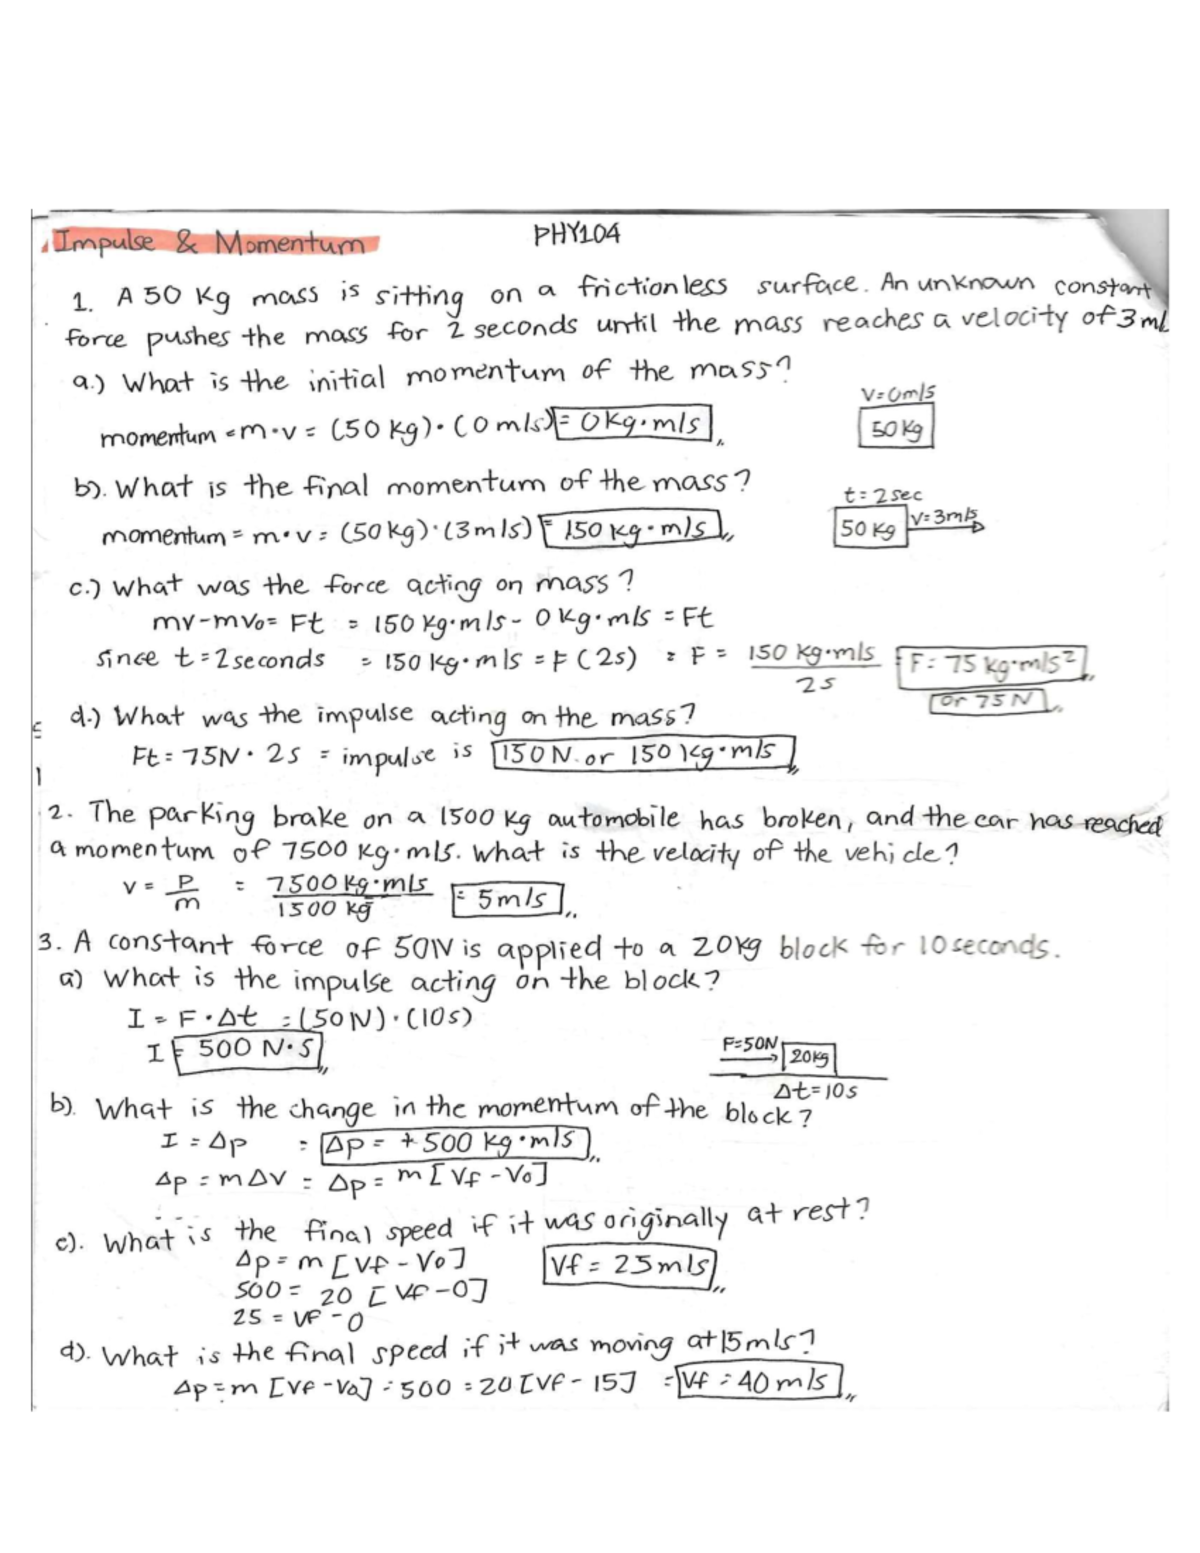 Impulse & Momentum
PHY104
1. A 50 kg mass is sitting on a frictionless surface. An unknown constant
force pushes the mass for 2 seconds until the mass reaches a velocity of 3 m/
a.) What is the initial momentum of the mass?
V=0m/s
momentum = m·v = (50 kg)·(0 m/s) = 0 kg·m/s
50 kg
b). What is the final momentum of the mass?
t=2sec
momentum = m·v = (50kg)·(3m/s) = 150 kg·m/s
50 kg V=3m/s
c.) What was the force acting on mass?
mv-mvo= Ft = 150 kg·m/s - 0 kg·m/s = Ft
since t=2seconds = 150 kg·m/s = F (2s) = F = 150 kg·m/s
2s
= F= 75 kg·m/s²
or 75 N
d.) What was the impulse acting on the mass?
Ft = 75N · 2s = impulse is 150 N. or 150 kg·m/s
2. The parking brake on a 1500 kg automobile has broken, and the car has reached
a momentum of 7500 kg·m/s. What is the velocity of the vehicle?
v = p = 7500 kg·m/s = 5m/s
m 1500 kg
3. A constant force of 50N is applied to a 20kg block for 10 seconds.
a) What is the impulse acting on the block?
I = F·Δt = (50N)·(10s)
I = 500 N·S
F=50N 20kg
Δt=10s
b). What is the change in the momentum of the block?
I = Δp = Δp = +500 kg·m/s
Δp = mΔV = Δp = m [Vf -Vo]
c). What is the final speed if it was originally at rest?
Δp = m [Vf - Vo] Vf = 25m/s
500 = 20 [Vf -0]
25 = Vf -0
d). What is the final speed if it was moving at 15m/s?
Δp = m [Vf -Vo] = 500 = 20 [Vf - 15] = Vf = 40 m/s